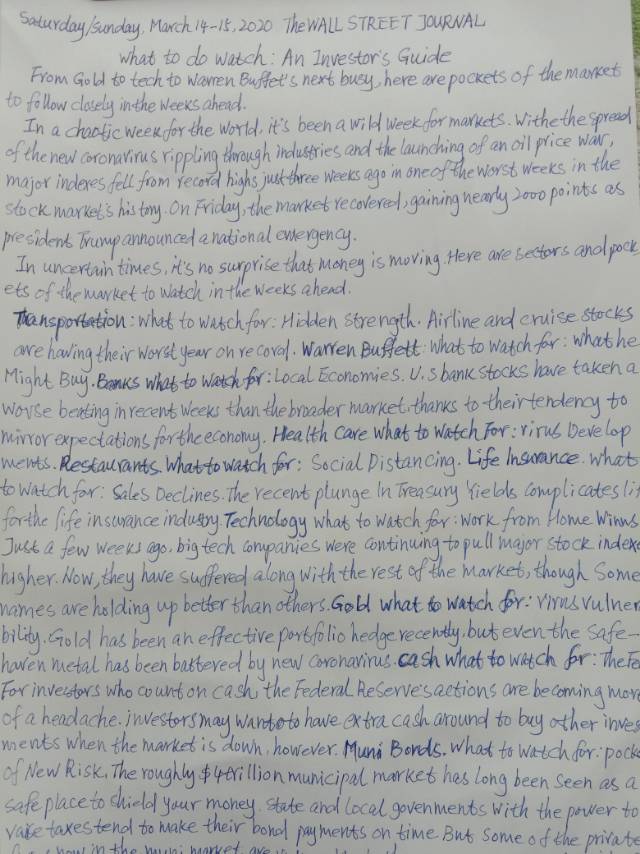 Saturday/Sunday, March 14-15, 2020 The WALL STREET JOURNAL
What to do Watch: An Investor's Guide
From Gold to tech to Warren Buffet's next busy, here are pockets of the market
to follow closely in the weeks ahead.
In a chaotic week for the world, it's been a wild week for markets. Withe the spread
of the new coronavirus rippling through industries and the launching of an oil price war,
major indexes fell from record highs just three weeks ago in one of the worst weeks in the
stock market's history. On Friday, the market recovered, gaining nearly 2000 points as
president Trump announced a national emergency.
In uncertain times, it's no surprise that money is moving. Here are sectors and pock
ets of the market to watch in the weeks ahead.
Transportation: What to Watch for: Hidden Strength. Airline and cruise stocks
are having their worst year on record. Warren Buffett: What to Watch for: What he
Might Buy. Banks What to Watch for: Local Economies. U.S bank stocks have taken a
worse beating in recent weeks than the broader market, thanks to their tendency to
mirror expectations for the economy. Health Care What to Watch For: Virus Develop
ments. Restaurants. What to watch for: Social Distancing. Life Insurance. What
to Watch for: Sales Declines. The recent plunge In Treasury Yields complicates li
for the life insurance industry. Technology What to Watch for: Work from Home Winns
Just a few weeks ago, big tech companies were continuing to pull major stock index
higher. Now, they have suffered along with the rest of the market, though Some
names are holding up better than others. Gold What to Watch for: Virus Vulner
bility. Gold has been an effective portfolio hedge recently, but even the safe-
haven metal has been battered by new coronavirus. Cash What to Watch for: The Fe
For investors who count on cash, the Federal Reserve's actions are becoming more
of a headache. investors may want to to have extra cash around to buy other inves
ments when the market is down, however. Muni Bonds. What to Watch for: pock
of New Risk. The roughly $4 trillion municipal market has long been seen as a
safe place to shield your money. State and local govenments with the power to
raise taxes tend to make their bond payments on time. But Some of the private
now in the muni market, are